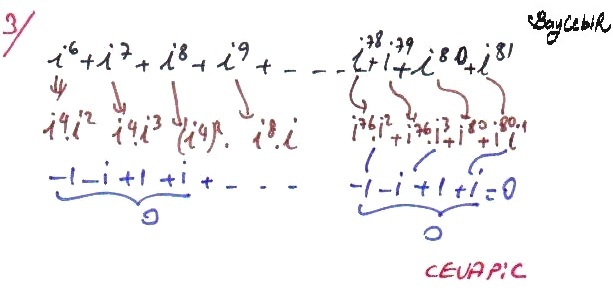 BayCebiR
3/
i⁶ + i⁷ + i⁸ + i⁹ + - - - i⁷⁸ + i⁷⁹ + i⁸⁰ + i⁸¹
i⁴.i² i⁴.i³ (i⁴)². i⁸.i i⁷⁶.i² + i⁷⁶.i³ + i⁸⁰ + i⁸⁰.i¹
-1 - i + 1 + i + - - - - -1 - i + 1 + i = 0
0 0
CEVAP: C